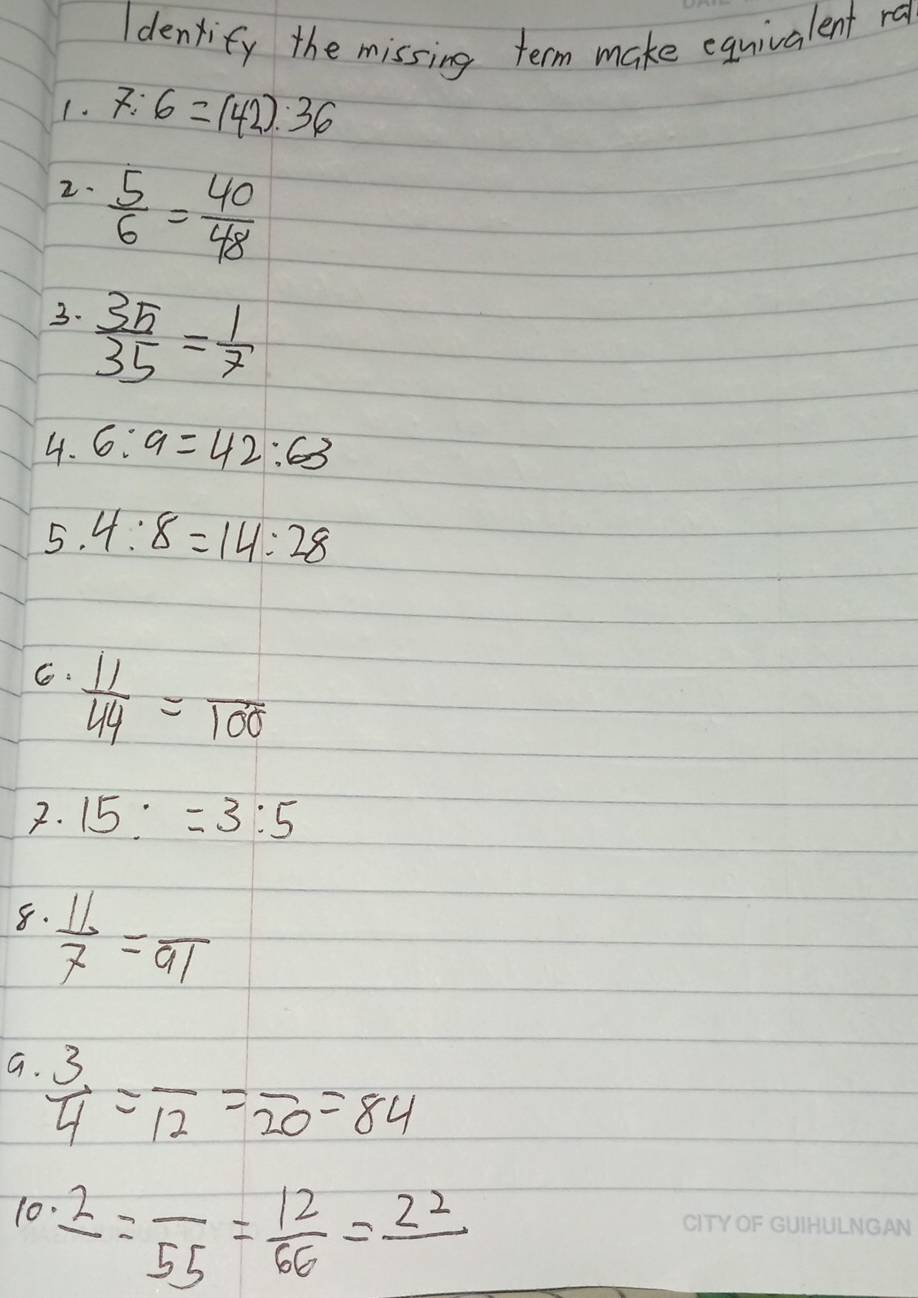 Identify the missing term make equivalent
1. 7:6 = (42):36
2. 5/6 = 40/48
3. 35/35 = 1/7
4. 6:9 = 42:63
5. 4:8 = 14:28
6. 11/44 = /100
7. 15: = 3:5
8. 11/7 = /91
9. 3/4 = /12 = /20 = 84
10. 2/ = /55 = 12/66 = 22/
CITY OF GUIHULNGAN